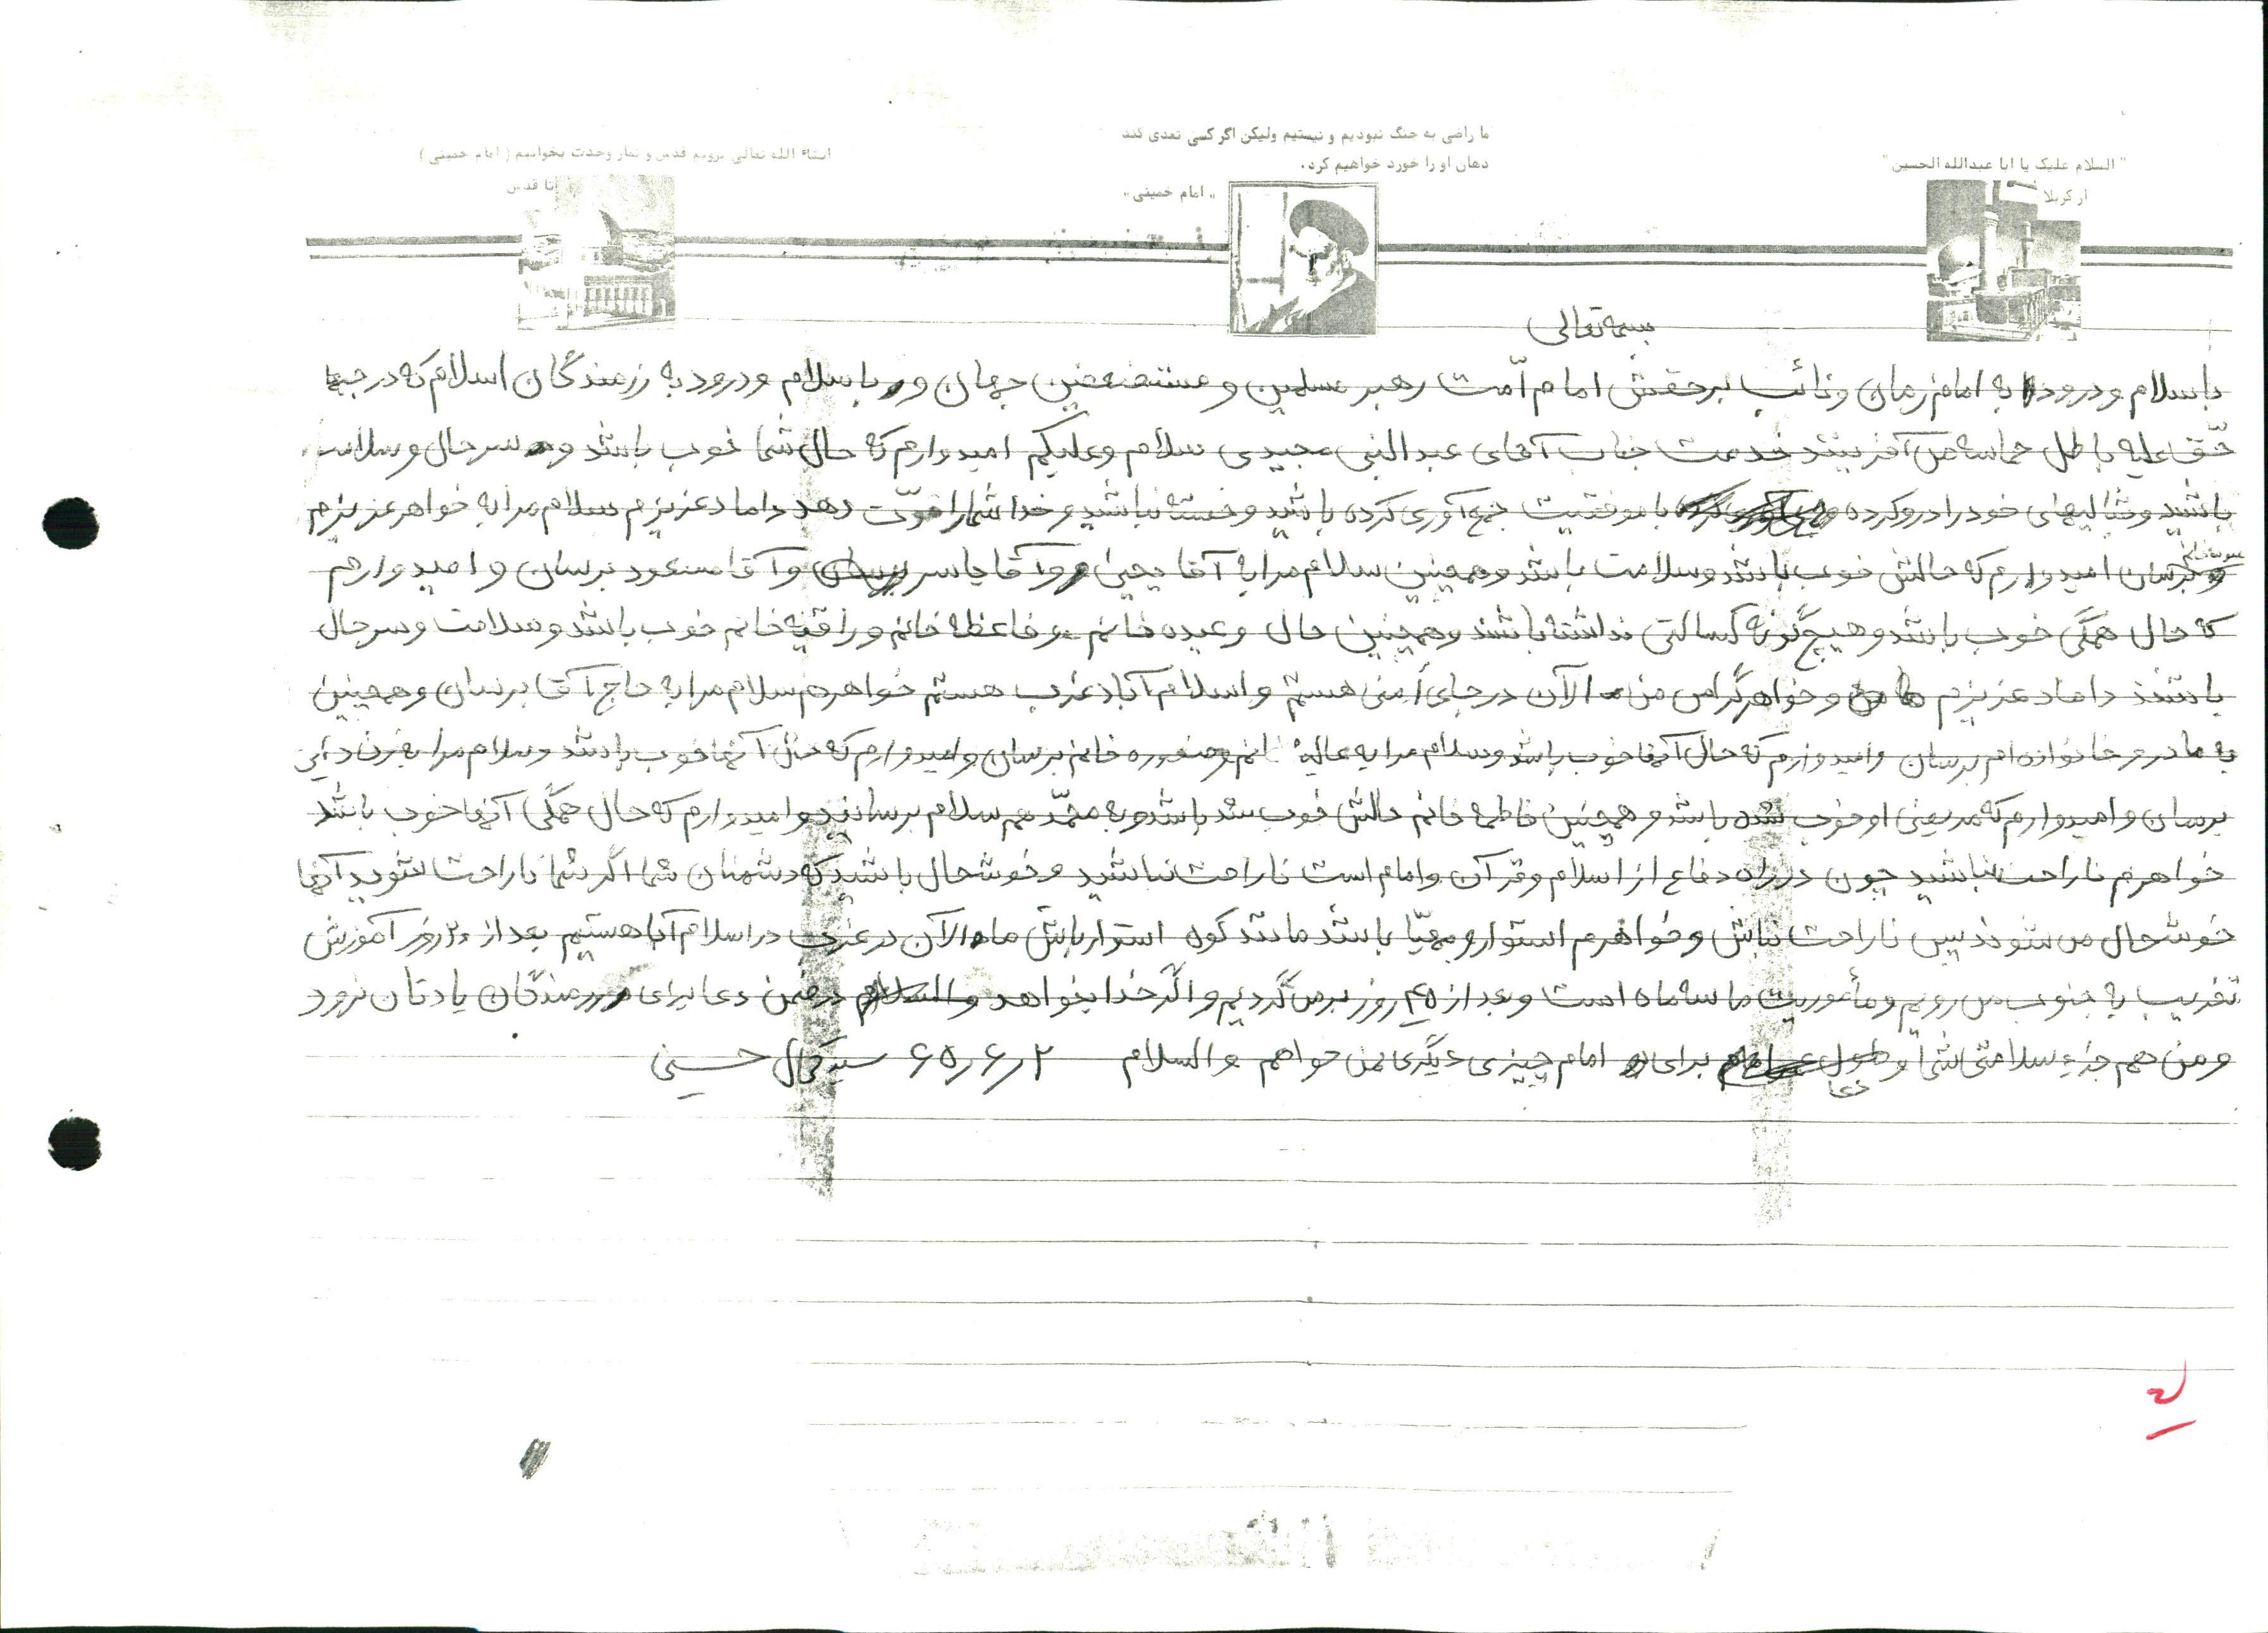 " السلام علیک یا ابا عبدالله الحسین "
از کربلا
ما راضی به جنگ نبودیم و نیستیم ولیکن اگر کسی تعدی کند
دهان او را خورد خواهیم کرد.
" امام خمینی "
انشاء الله تعالی برویم قدس و نماز وحدت بخوانیم ( امام خمینی )
تا قدس
بسمه تعالی
با سلام و درود به امام زمان و نائب برحقش امام امّت رهبر مسلمین و مستضعفین جهان و با سلام و درود به رزمندگان اسلام که در جبهه
حّق علیه باطل حماسه می آفرینند خدمت جناب آقای عبدالنبی مجیدی سلام و علیکم امیدوارم که حال شما خوب باشد و سرحال و سلامت
باشید و شالیهای خود را درو کرده با موفقیت جمع آوری کرده باشید و خسته نباشید و خدا شما را قوّت دهد داماد عزیزم سلام مرا به خواهر عزیزم
برسان امیدوارم که حالش خوب باشد و سلامت باشد و همچنین سلام مرا به آقا یحیی و آقا یاسر و آقا مسعود برسان و امیدوارم
که حال همگی خوب باشد و هیچ گونه کسالتی نداشته باشند و همچنین حال و عبده خانم و فاعظه خانم و راقیه خانم خوب باشد و سلامت و سرحال
باشند داماد عزیزم و خواهر گرامی من الآن در جای أمنی هستم و اسلام آباد غرب هستم خواهرم سلام مرا به حاج آقا برسان و همچنین
به مادر و خانواده ام برسان و امیدوارم که حال آنها خوب باشد و سلام مرا به عالیه خانم و صغوره خانم برسان و امیدوارم که حال آنها خوب باشد و سلام مرا به زن دایی
برسان و امیدوارم که مریضی او خوب شده باشد و همچنین فاطمه خانم حالش خوب شد باشد و به محمّد هم سلام برسانید و امیدوارم که حال همگی آنها خوب باشد
خواهرم ناراحت نباشید چون در راه دفاع از اسلام و قرآن و امام است ناراحت نباشید و خوشحال باشید که دشمنان شما اگر شما ناراحت شوید آنها
خوشحال می شوند پس ناراحت نباش و خواهرم استوار و مهیّا باشد مانند کوه استوار باش ما الآن در غرب در اسلام آباد هستیم بعد از ۲۰ روز آموزش
تخریب به جنوب می رویم و مأموریت ما سه ماه است و بعد از ۴۵ روز برمی گردیم و اگر خدا بخواهد در ضمن دعا برای رزمندگان یادتان نرود
و من هم جزء سلامتی شما و طول برای امام چیزی دیگری نمی خواهم والسلام ۶۵/۶/۲ سید کمال حسینی